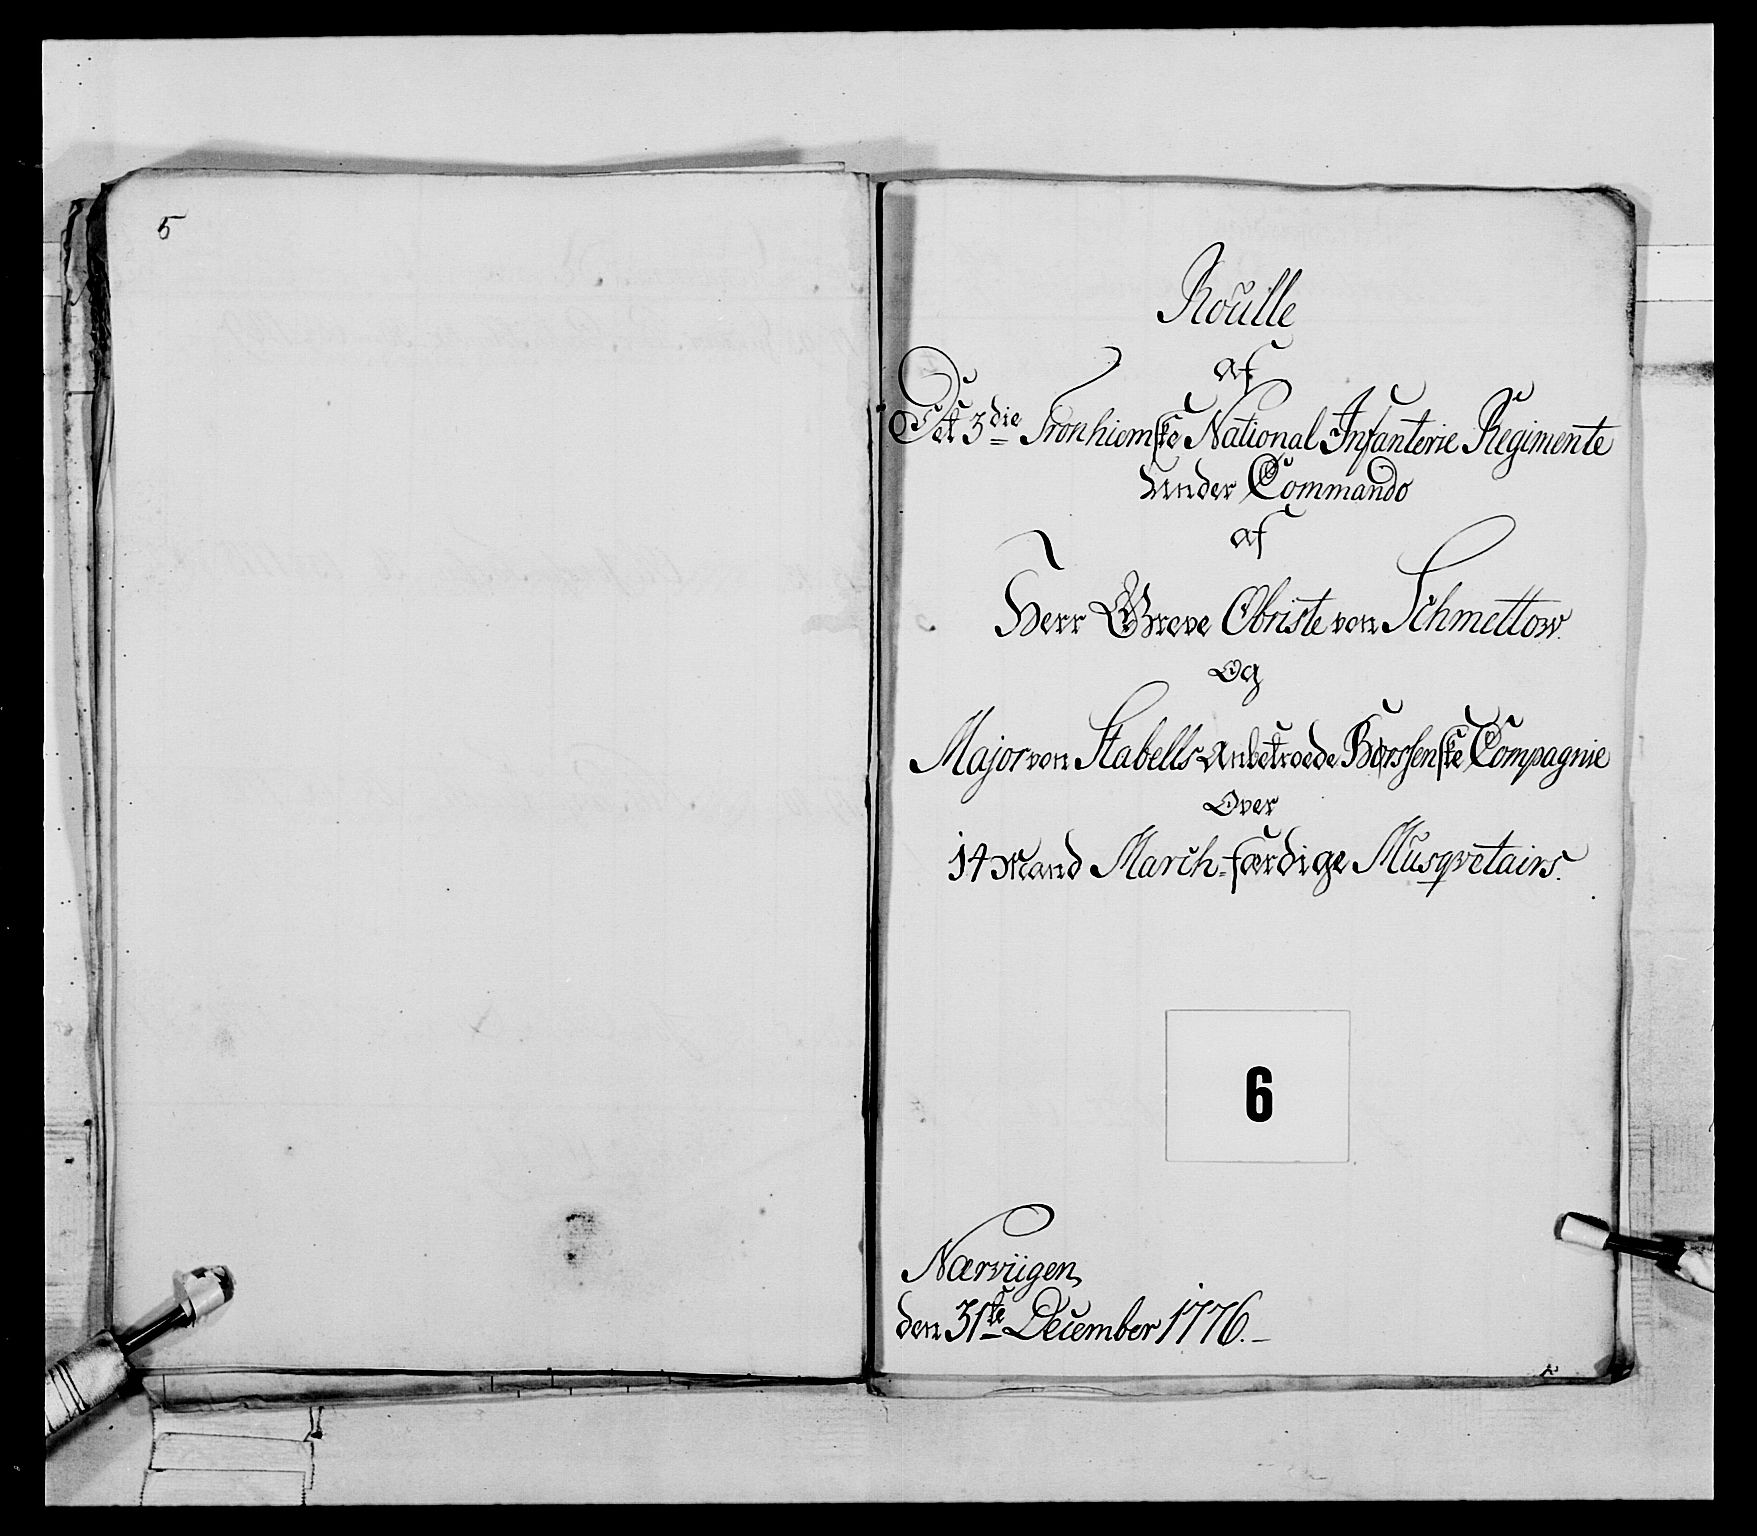 5
Roulle
af
Det 3die Tronhiemske National Infanterie Regimente
Under Commando
af
Herr Greve Obriste von Schmettow
Og
Major von Stabells Anbetroede Børssenske Compagnie
Over
14 Mand March-færdige Musqvetairs.
6
Nærviigen,
den 31te December 1776.